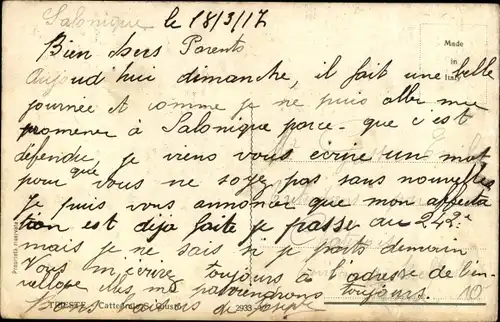 Salonique le 18/3/17
Bien chers Parents
Made
in
Italy
Aujourd'hui dimanche, il fait une belle
journée et comme je ne puis aller me
promener à Salonique parce-que c'est
défendu, je viens vous écrire un mot
pour que vous ne soyez pas sans nouvelles
Je puis vous annoncer que mon affecta
tion est déjà faite je passe au 242e
mais je ne sais si je parts demain
Vous m'écrivez toujours à l'adresse de l'en-
veloppe elles me parviendrons toujours.
Bons baisers de
TRIESTE - Cattedrale S. Giusto
2933
10